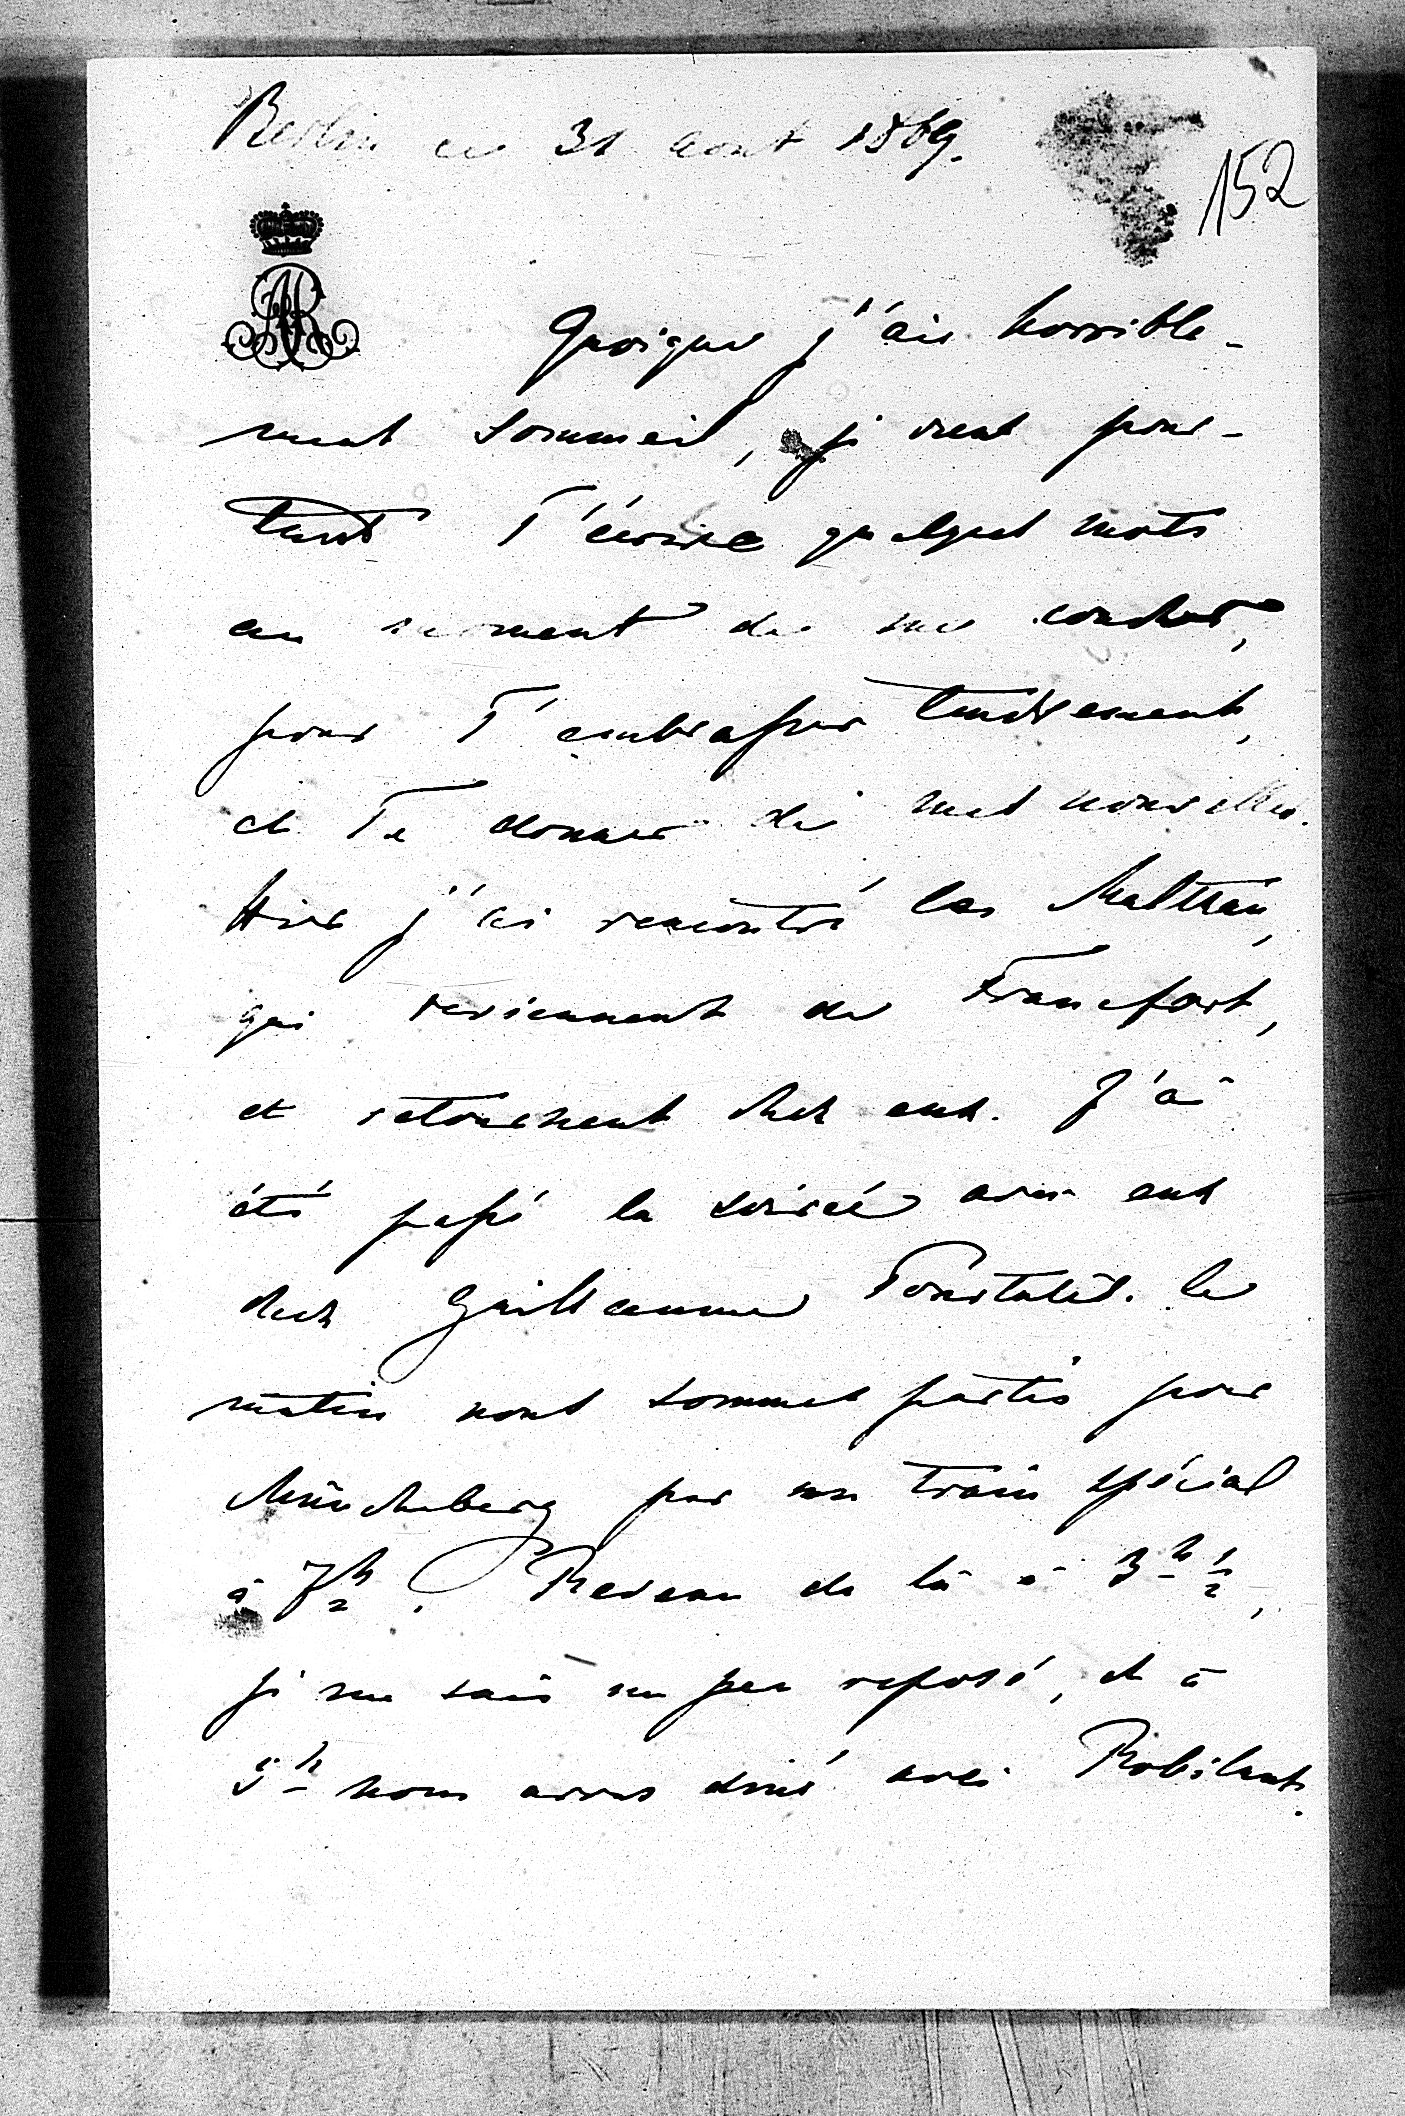 Berlin ce 31 aout 1869.
152
AR
Quoique j'aie horrible-
ment sommeil, je veut pour-
tant T'écrire quelques mots
au moment de me coucher,
pour T'embrasser tendrement,
et Te donner de mes nouvelles.
Hier j'ai rencontré les Malttzan,
qui reviennent de Francfort,
et retournent chez eux. J'ai
été passé la soirée avec eux
chez Guillaume Pourtalès. Le
matin nous sommes partis pour
Müncheberg par un train spécial
à 7 h. Revenu de là à 3 h ½,
je me suis un peu reposé, et à
5 h nous avons diné avec Robilant.